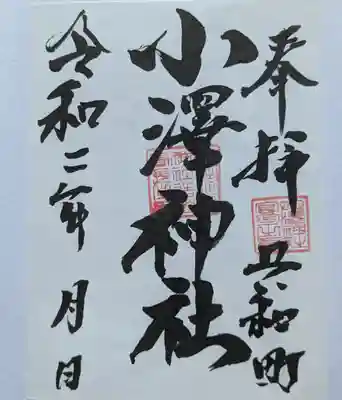 奉拝 共和町
小澤神社
令和二年 月 日